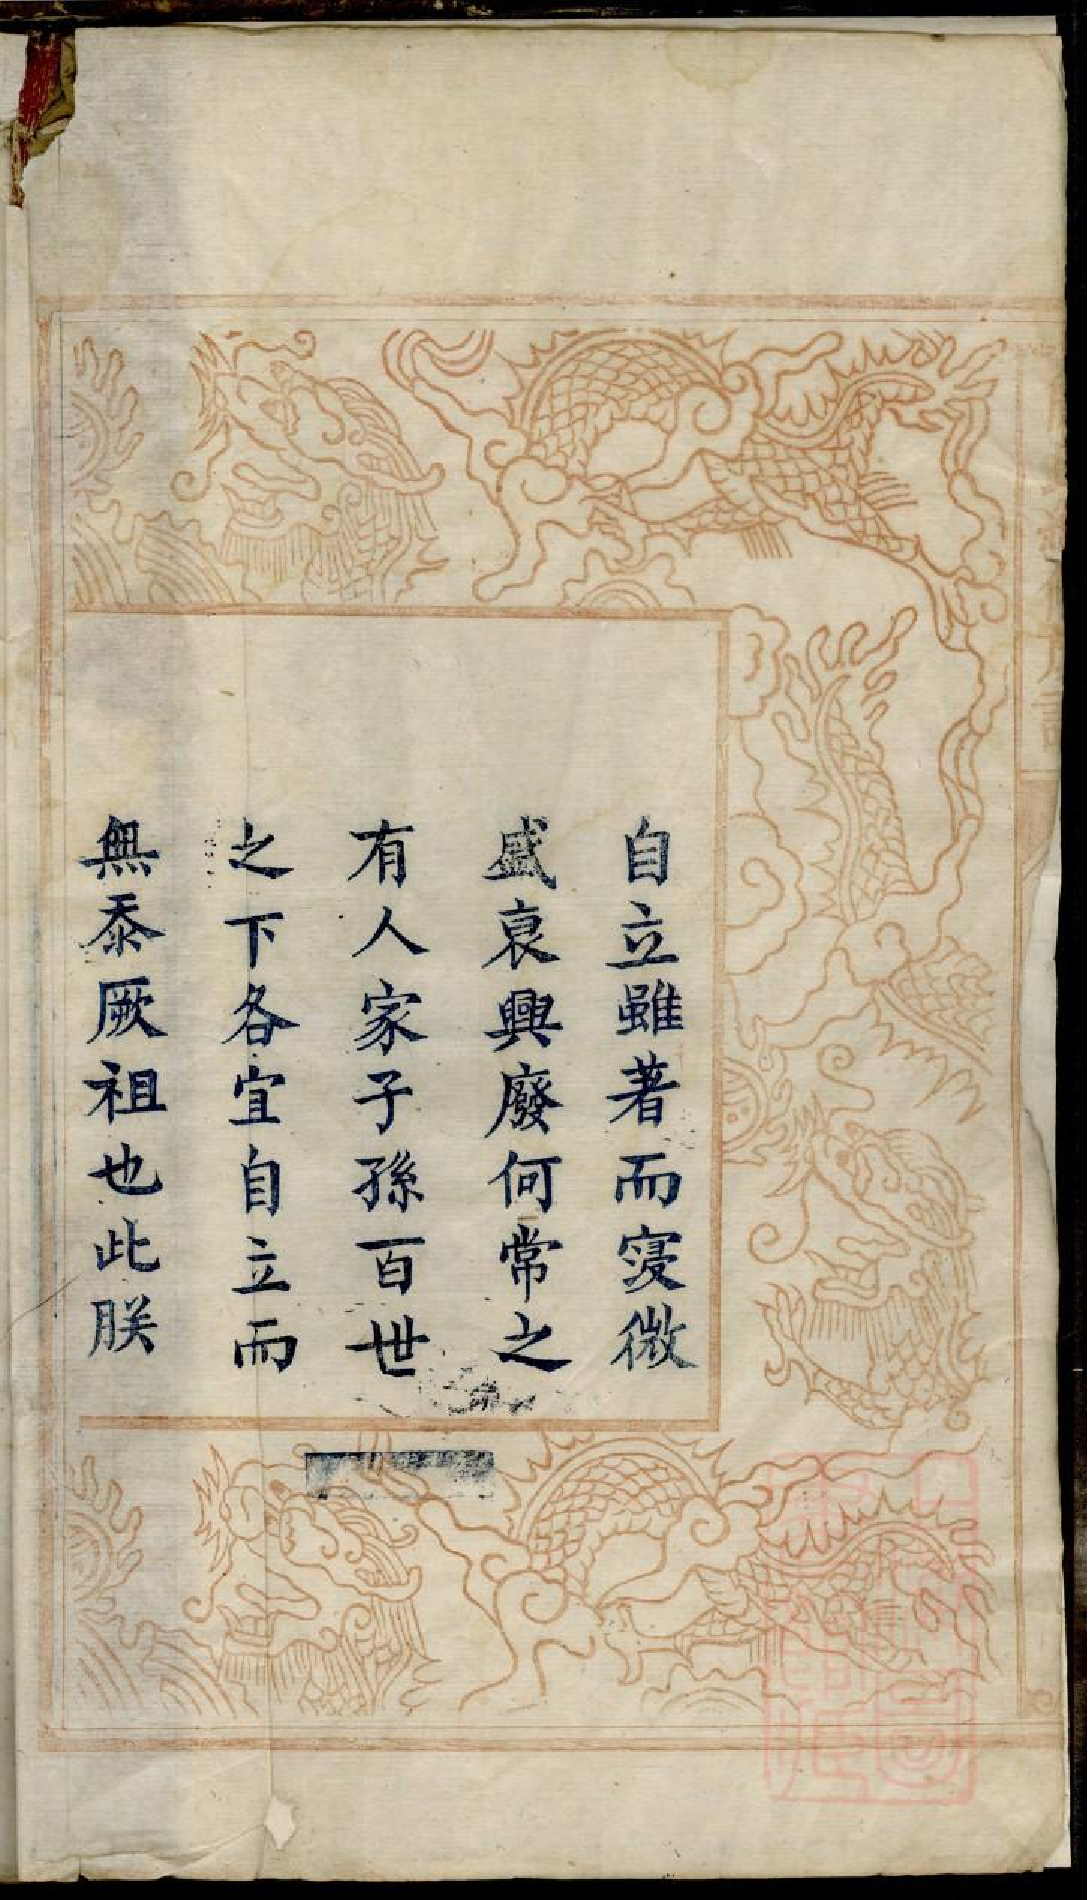 自立雖著而寖微
盛衰興廢何常之
有人家子孫百世
之下各宜自立而
無忝厥祖也此朕